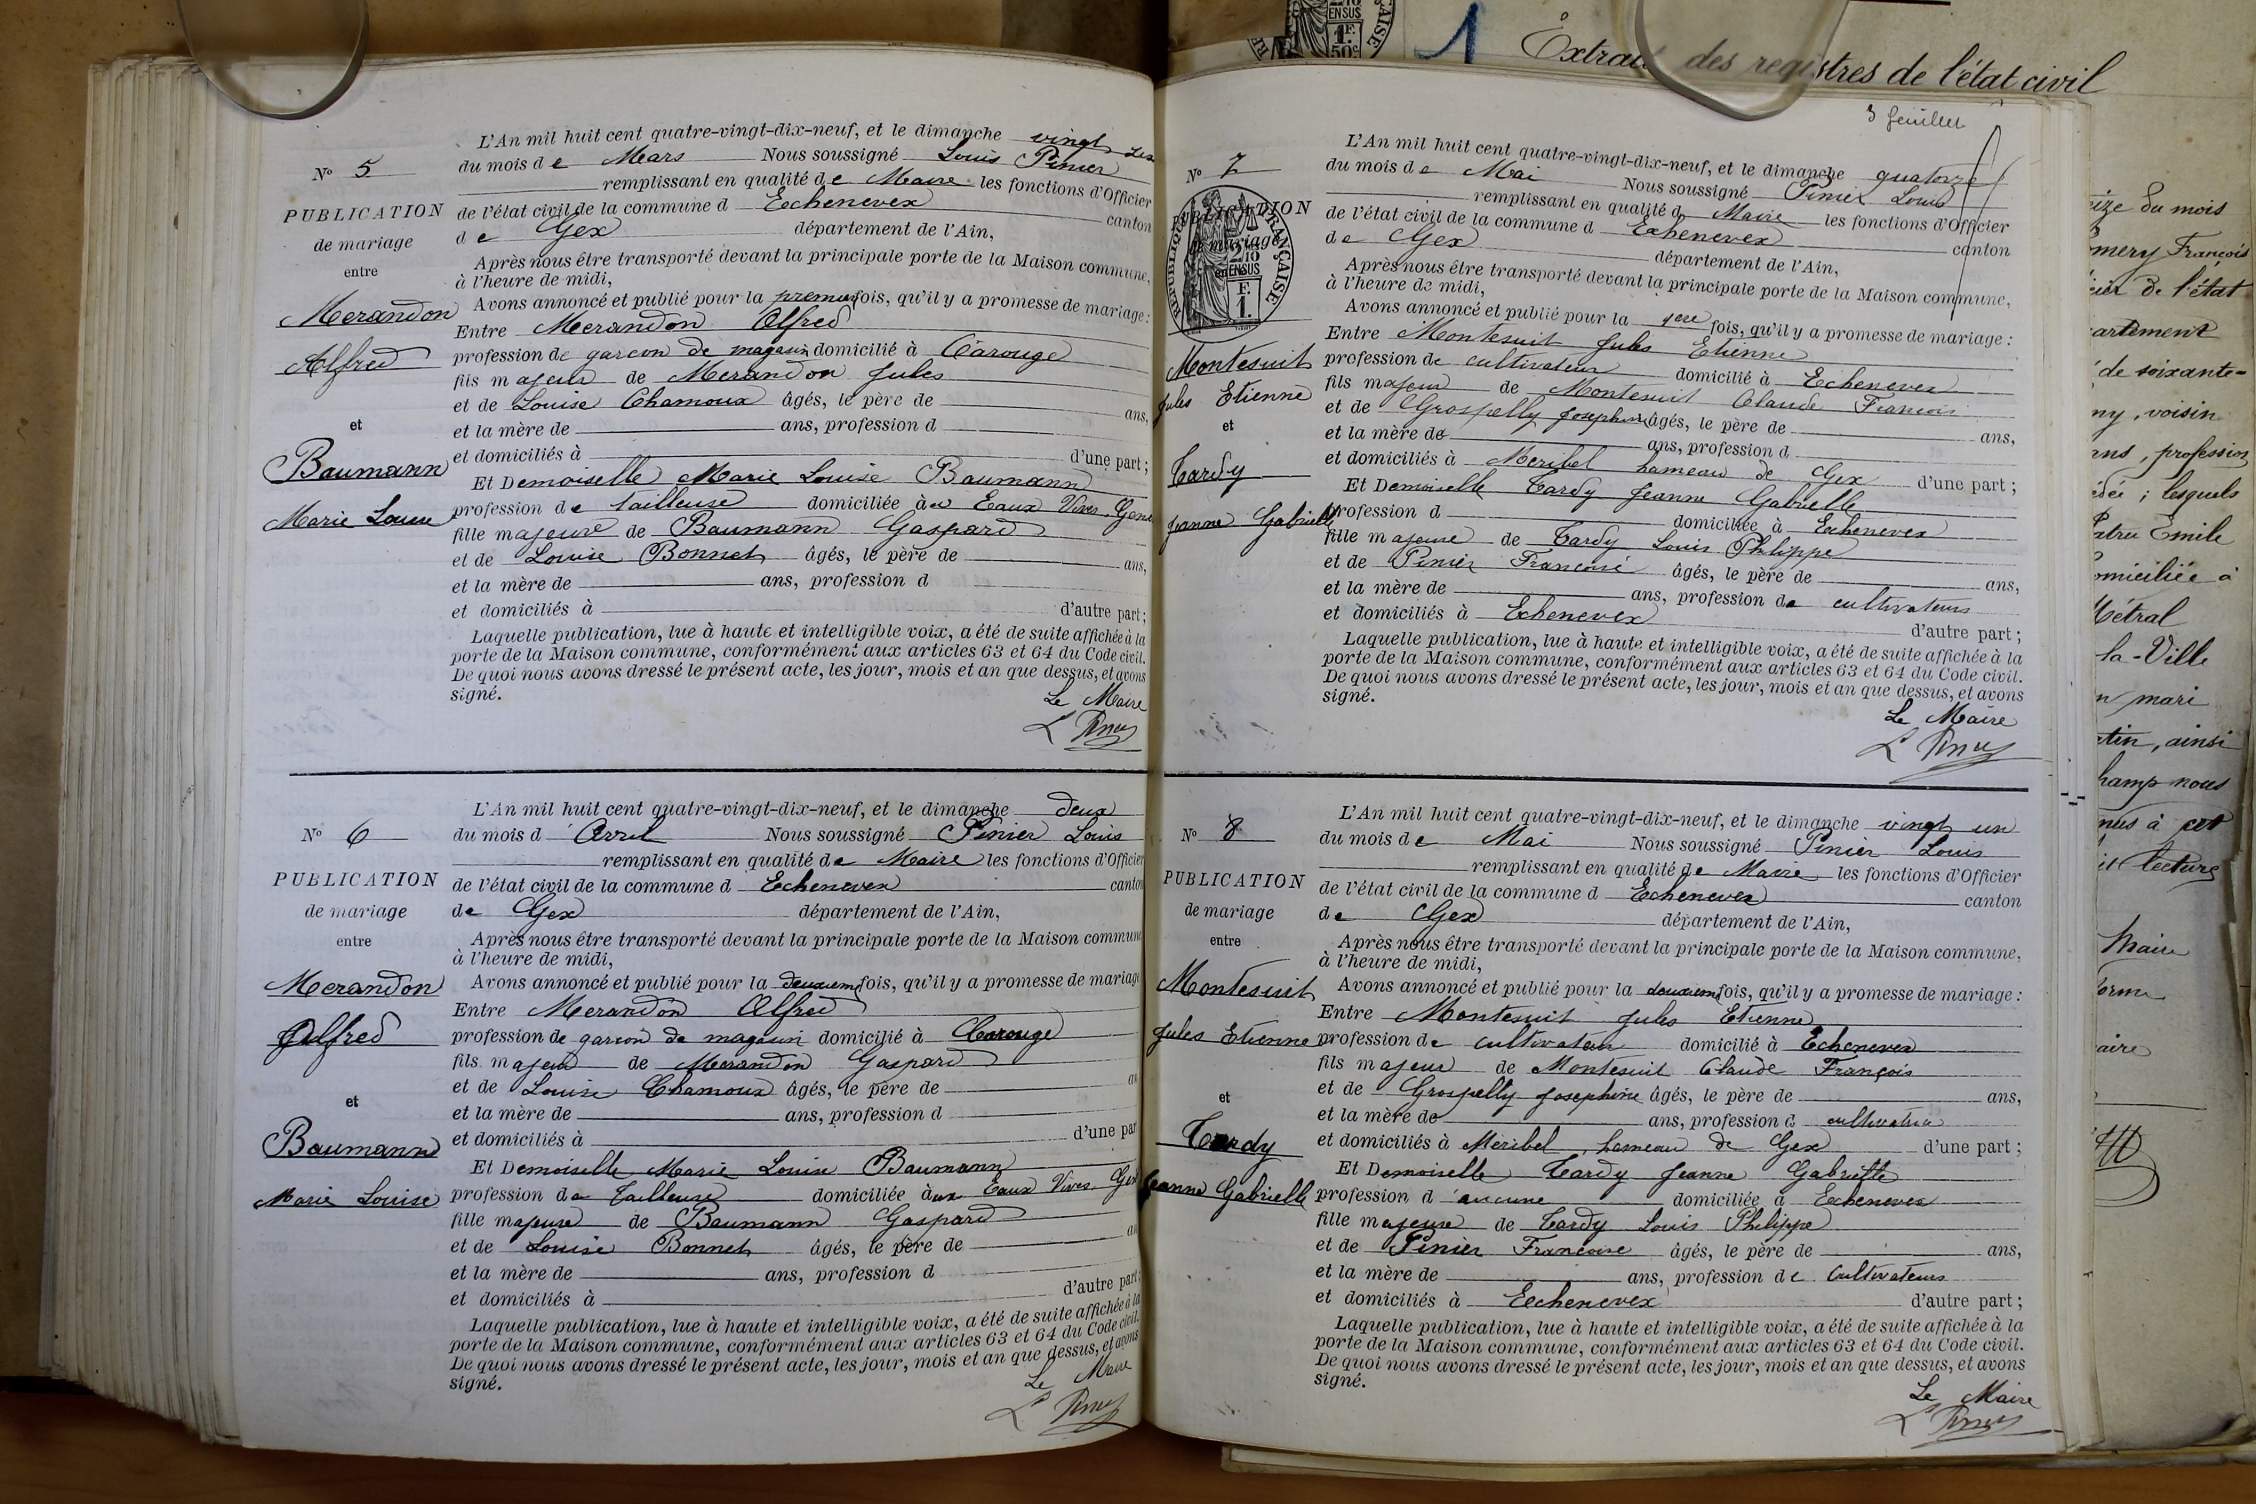 N° 5
PUBLICATION
de mariage
entre
Merandon
Alfred
et
Baumann
Marie Louise
L'An mil huit cent quatre-vingt-dix-neuf, et le dimanche vingt six
du mois de Mars Nous soussigné Louis Pinier
remplissant en qualité de Maire les fonctions d'Officier
de l'état civil de la commune d Echenevex canton
de Gex département de l'Ain,
Après nous être transporté devant la principale porte de la Maison commune,
à l'heure de midi,
Avons annoncé et publié pour la première fois, qu'il y a promesse de mariage :
Entre Merandon Alfred
profession de garcon de magasin domicilié à Carouge
fils majeur de Merandon Jules
et de Louise Chamoux âgés, le père de ans,
et la mère de ans, profession d
et domiciliés à d'une part ;
Et Demoiselle Marie Louise Baumann
profession de tailleuse domiciliée à Eaux Vives
fille majeure de Baumann Gaspard
et de Louise Bonnet âgés, le père de ans,
et la mère de ans, profession d
et domiciliés à d'autre part ;
Laquelle publication, lue à haute et intelligible voix, a été de suite affichée à la
porte de la Maison commune, conformément aux articles 63 et 64 du Code civil.
De quoi nous avons dressé le présent acte, les jour, mois et an que dessus, et avons
signé.
Le Maire
L Pinier
N° 6
PUBLICATION
de mariage
entre
Merandon
Alfred
et
Baumann
Marie Louise
L'An mil huit cent quatre-vingt-dix-neuf, et le dimanche deux
du mois d Avril Nous soussigné Pinier Louis
remplissant en qualité de Maire les fonctions d'Officier
de l'état civil de la commune d Echenevex canton
de Gex département de l'Ain,
Après nous être transporté devant la principale porte de la Maison commune
à l'heure de midi,
Avons annoncé et publié pour la deuxième fois, qu'il y a promesse de mariage
Entre Merandon Alfred
profession de garcon de magasin domicilié à Carouge
fils majeur de Merandon Gaspard
et de Louise Chamoux âgés, le père de
et la mère de ans, profession d
et domiciliés à d'une part
Et Demoiselle Marie Louise Baumann
profession de Tailleuse domiciliée à aux Eaux Vives
fille majeure de Baumann Gaspard
et de Louise Bonnet âgés, le père de
et la mère de ans, profession d
et domiciliés à d'autre part ;
Laquelle publication, lue à haute et intelligible voix, a été de suite affichée à la
porte de la Maison commune, conformément aux articles 63 et 64 du Code civil.
De quoi nous avons dressé le présent acte, les jour, mois et an que dessus, et avons
signé.
Le Maire
L Pinier
3 feuillet
N° 7
PUBLICATION
de mariage
RÉPUBLIQUE FRANÇAISE
2/10 EN SUS
1 F.
Montesuit
Jules Etienne
et
Tardy
Jeanne Gabrielle
L'An mil huit cent quatre-vingt-dix-neuf, et le dimanche quatorze
du mois de Mai Nous soussigné Pinier Louis
remplissant en qualité d Maire les fonctions d'Officier
de l'état civil de la commune d Echenevex canton
de Gex département de l'Ain,
Après nous être transporté devant la principale porte de la Maison commune,
à l'heure de midi,
Avons annoncé et publié pour la 1ere fois, qu'il y a promesse de mariage :
Entre Montesuit Jules Etienne
profession de cultivateur domicilié à Echenevex
fils majeur de Montesuit Claude François
et de Grospelly Josephine âgés, le père de ans,
et la mère de ans, profession d
et domiciliés à Meribel hameau de Gex d'une part ;
Et Demoiselle Tardy Jeanne Gabrielle
profession d domiciliée à Echenevex
fille majeure de Tardy Louis Philippe
et de Pinier Francoise âgés, le père de ans,
et la mère de ans, profession de cultivateurs
et domiciliés à Echenevex d'autre part ;
Laquelle publication, lue à haute et intelligible voix, a été de suite affichée à la
porte de la Maison commune, conformément aux articles 63 et 64 du Code civil.
De quoi nous avons dressé le présent acte, les jour, mois et an que dessus, et avons
signé.
Le Maire
L Pinier
N° 8
PUBLICATION
de mariage
entre
Montesuit
Jules Etienne
et
Tardy
Jeanne Gabrielle
L'An mil huit cent quatre-vingt-dix-neuf, et le dimanche vingt un
du mois de Mai Nous soussigné Pinier Louis
remplissant en qualité de Maire les fonctions d'Officier
de l'état civil de la commune d Echenevex canton
de Gex département de l'Ain,
Après nous être transporté devant la principale porte de la Maison commune,
à l'heure de midi,
Avons annoncé et publié pour la deuxième fois, qu'il y a promesse de mariage :
Entre Montesuit Jules Etienne
profession de cultivateur domicilié à Echenevex
fils majeur de Montesuit Claude François
et de Grospelly Josephine âgés, le père de ans,
et la mère de ans, profession d cultivateur
et domiciliés à Meribel, hameau de Gex d'une part ;
Et Demoiselle Tardy Jeanne Gabrielle
profession d aucune domiciliée à Echenevex
fille majeure de Tardy Louis Philippe
et de Pinier Francoise âgés, le père de ans,
et la mère de ans, profession de Cultivateurs
et domiciliés à Echenevex d'autre part ;
Laquelle publication, lue à haute et intelligible voix, a été de suite affichée à la
porte de la Maison commune, conformément aux articles 63 et 64 du Code civil.
De quoi nous avons dressé le présent acte, les jour, mois et an que dessus, et avons
signé.
Le Maire
L Pinier
EN SUS
1 F.
50 c
1
Extrait des registres de l'état civil
du mois
François
de l'état
de soixante=
voisin
profession
; lesquels
Emile
domiciliée à
Métral
la-Ville
mari
ainsi
nous
à cet
lecture
Maire